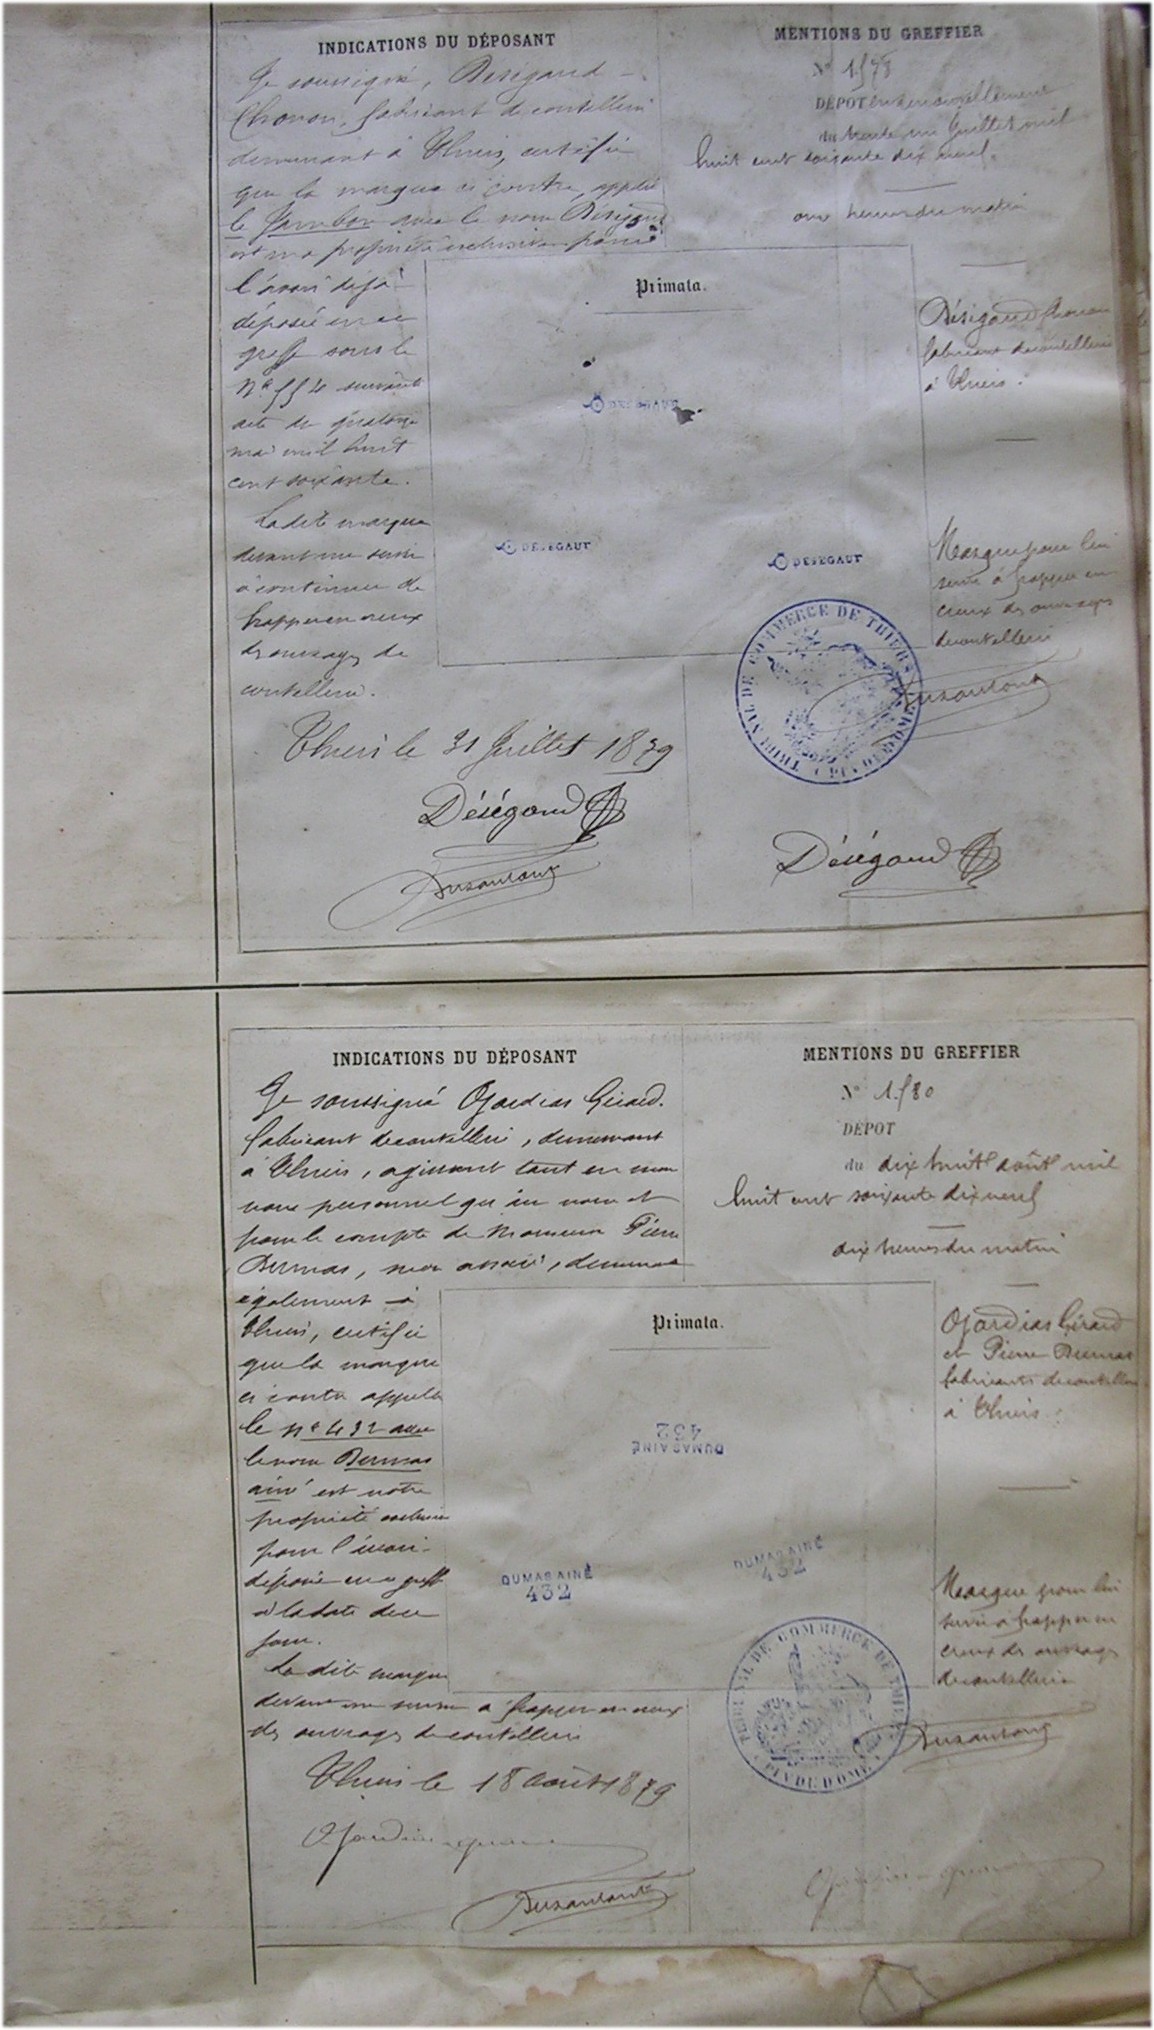 INDICATIONS DU DÉPOSANT
Je soussigné, Déségaud
Chovon, fabricant de coutellerie
demeurant à Thiers, certifie
que la marque ci contre, appelée
le Jambon avec le nom Déségaud
est ma propriété exclusive pour
l'avoir déjà
déposée en ce
greffe sous le
Nº 554 suivant
acte du quatorze
mai mil huit
cent soixante.
Ladite marque
devant me servir
à continuer de
frapper en creux
des ouvrages de
coutellerie.
Thiers le 31 Juillet 1879
Déségaud
MENTIONS DU GREFFIER
Nº
DÉPOT en renouvellement
du trente un Juillet mil
huit cent soixante dix neuf.
onze heures du matin
Primata.
Déségaud
fabricant de coutellerie
à Thiers.
DESEGAUT
DESEGAUT
Marque pour lui
servir à frapper en
creux des ouvrages
de coutellerie
TRIBUNAL DE COMMERCE DE THIERS
PUY-DE-DOME
Déségaud
INDICATIONS DU DÉPOSANT
Je soussigné Ojardias Gérard.
fabricant de coutellerie, demeurant
à Thiers, agissant tant en mon
nom personnel qu'au nom et
pour le compte de Monsieur Pierre
Dumas, mon associé, demeurant
également à
Thiers, certifie
que la marque
ci contre appelée
le Nº 432 avec
le nom Dumas
ainé est notre
propriété exclusive
pour l'avoir
déposée en ce greffe
à la date de ce
jour.
La dite marque
devant me servir à frapper en creux
des ouvrages de coutellerie
Thiers le 18 Août 1879
MENTIONS DU GREFFIER
Nº 1580
DÉPOT
du dix huit août mil
huit cent soixante dix neuf
dix heures du matin
Primata.
Ojardias Gérard
et Pierre Dumas
fabricants de coutellerie
à Thiers
DUMAS AINÉ
432
DUMAS AINÉ
432
DUMAS AINÉ
432
Marque pour lui
servir à frapper en
creux des ouvrages
de coutellerie
TRIBUNAL DE COMMERCE DE THIERS
PUY DE DOME